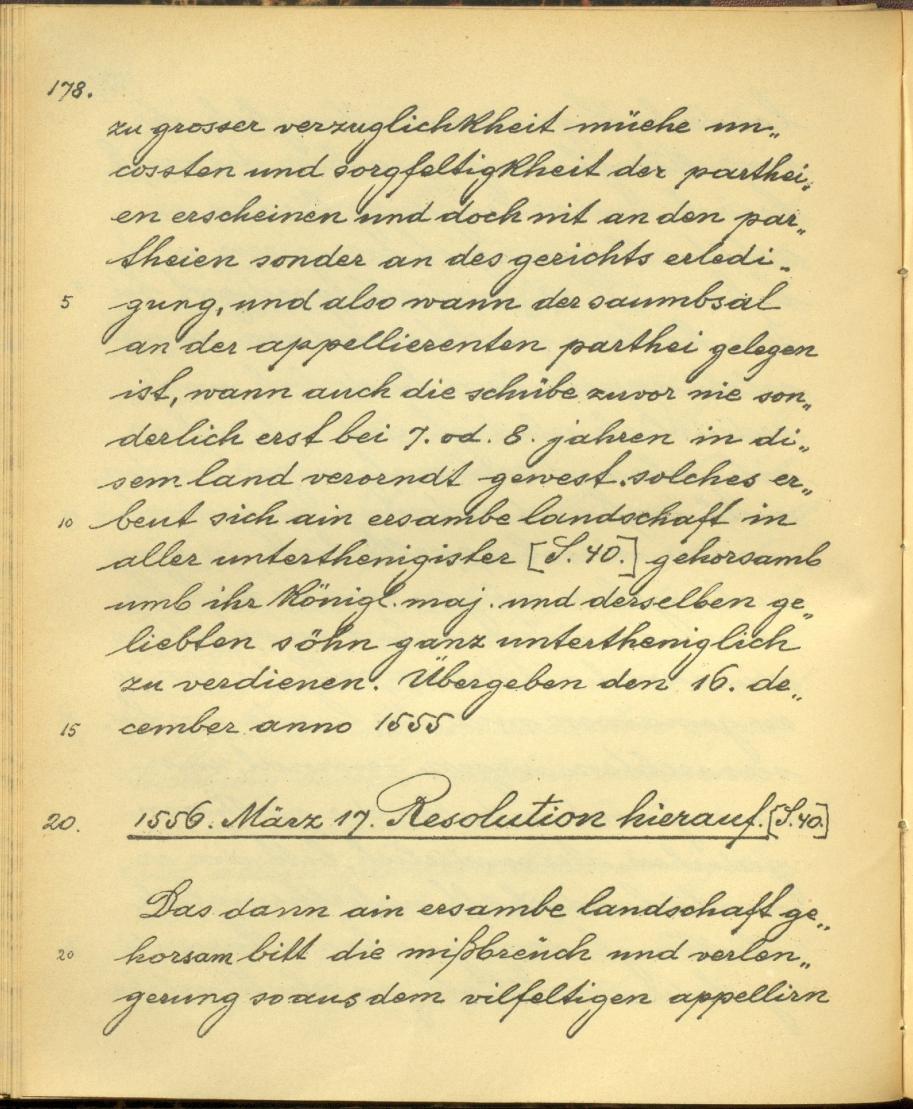 178.
zu grosser verzuglichkheit müehe un„
cossten und sorgfeltigkheit der parthei„
en erscheinen und doch nit an den par„
theien sonder an des gerichts erledi„
5 gung, und also wann der saumbsal
an der appellierenten parthei gelegen
ist, wann auch die schübe zuvor nie son„
derlich erst bei 7. od. 8. jahren in di„
sem land verorndt gewest. solches er„
10 beut sich ain ersambe landschaft in
aller unterthenigister [S. 40.] gehorsamb
umb ihr Königl. maj. und derselben ge„
liebten söhn ganz unterthenigl​ich
zu verdienen. Übergeben den 16. de„
15 cember anno 1555
20. 1556. März 17. Resolution hierauf. [S. 40.]
Das dann ain ersambe landschaft ge„
20 horsam bitt die mißbreüch und verlen„
gerung so aus dem vilfeltigen appellirn